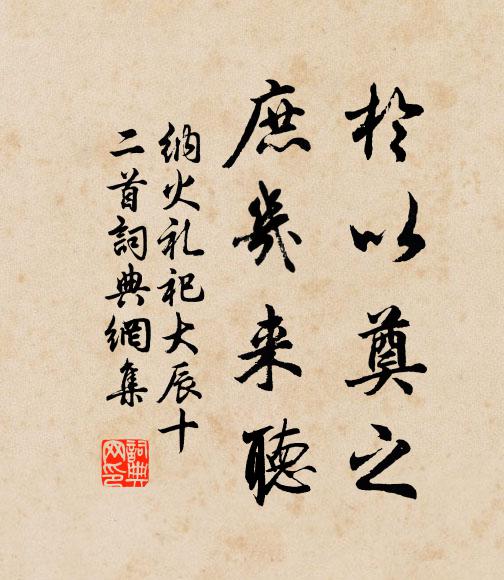 於以奠之
庶几来聽
納火礼祀大辰十
二首詞典網集
詞典
网印